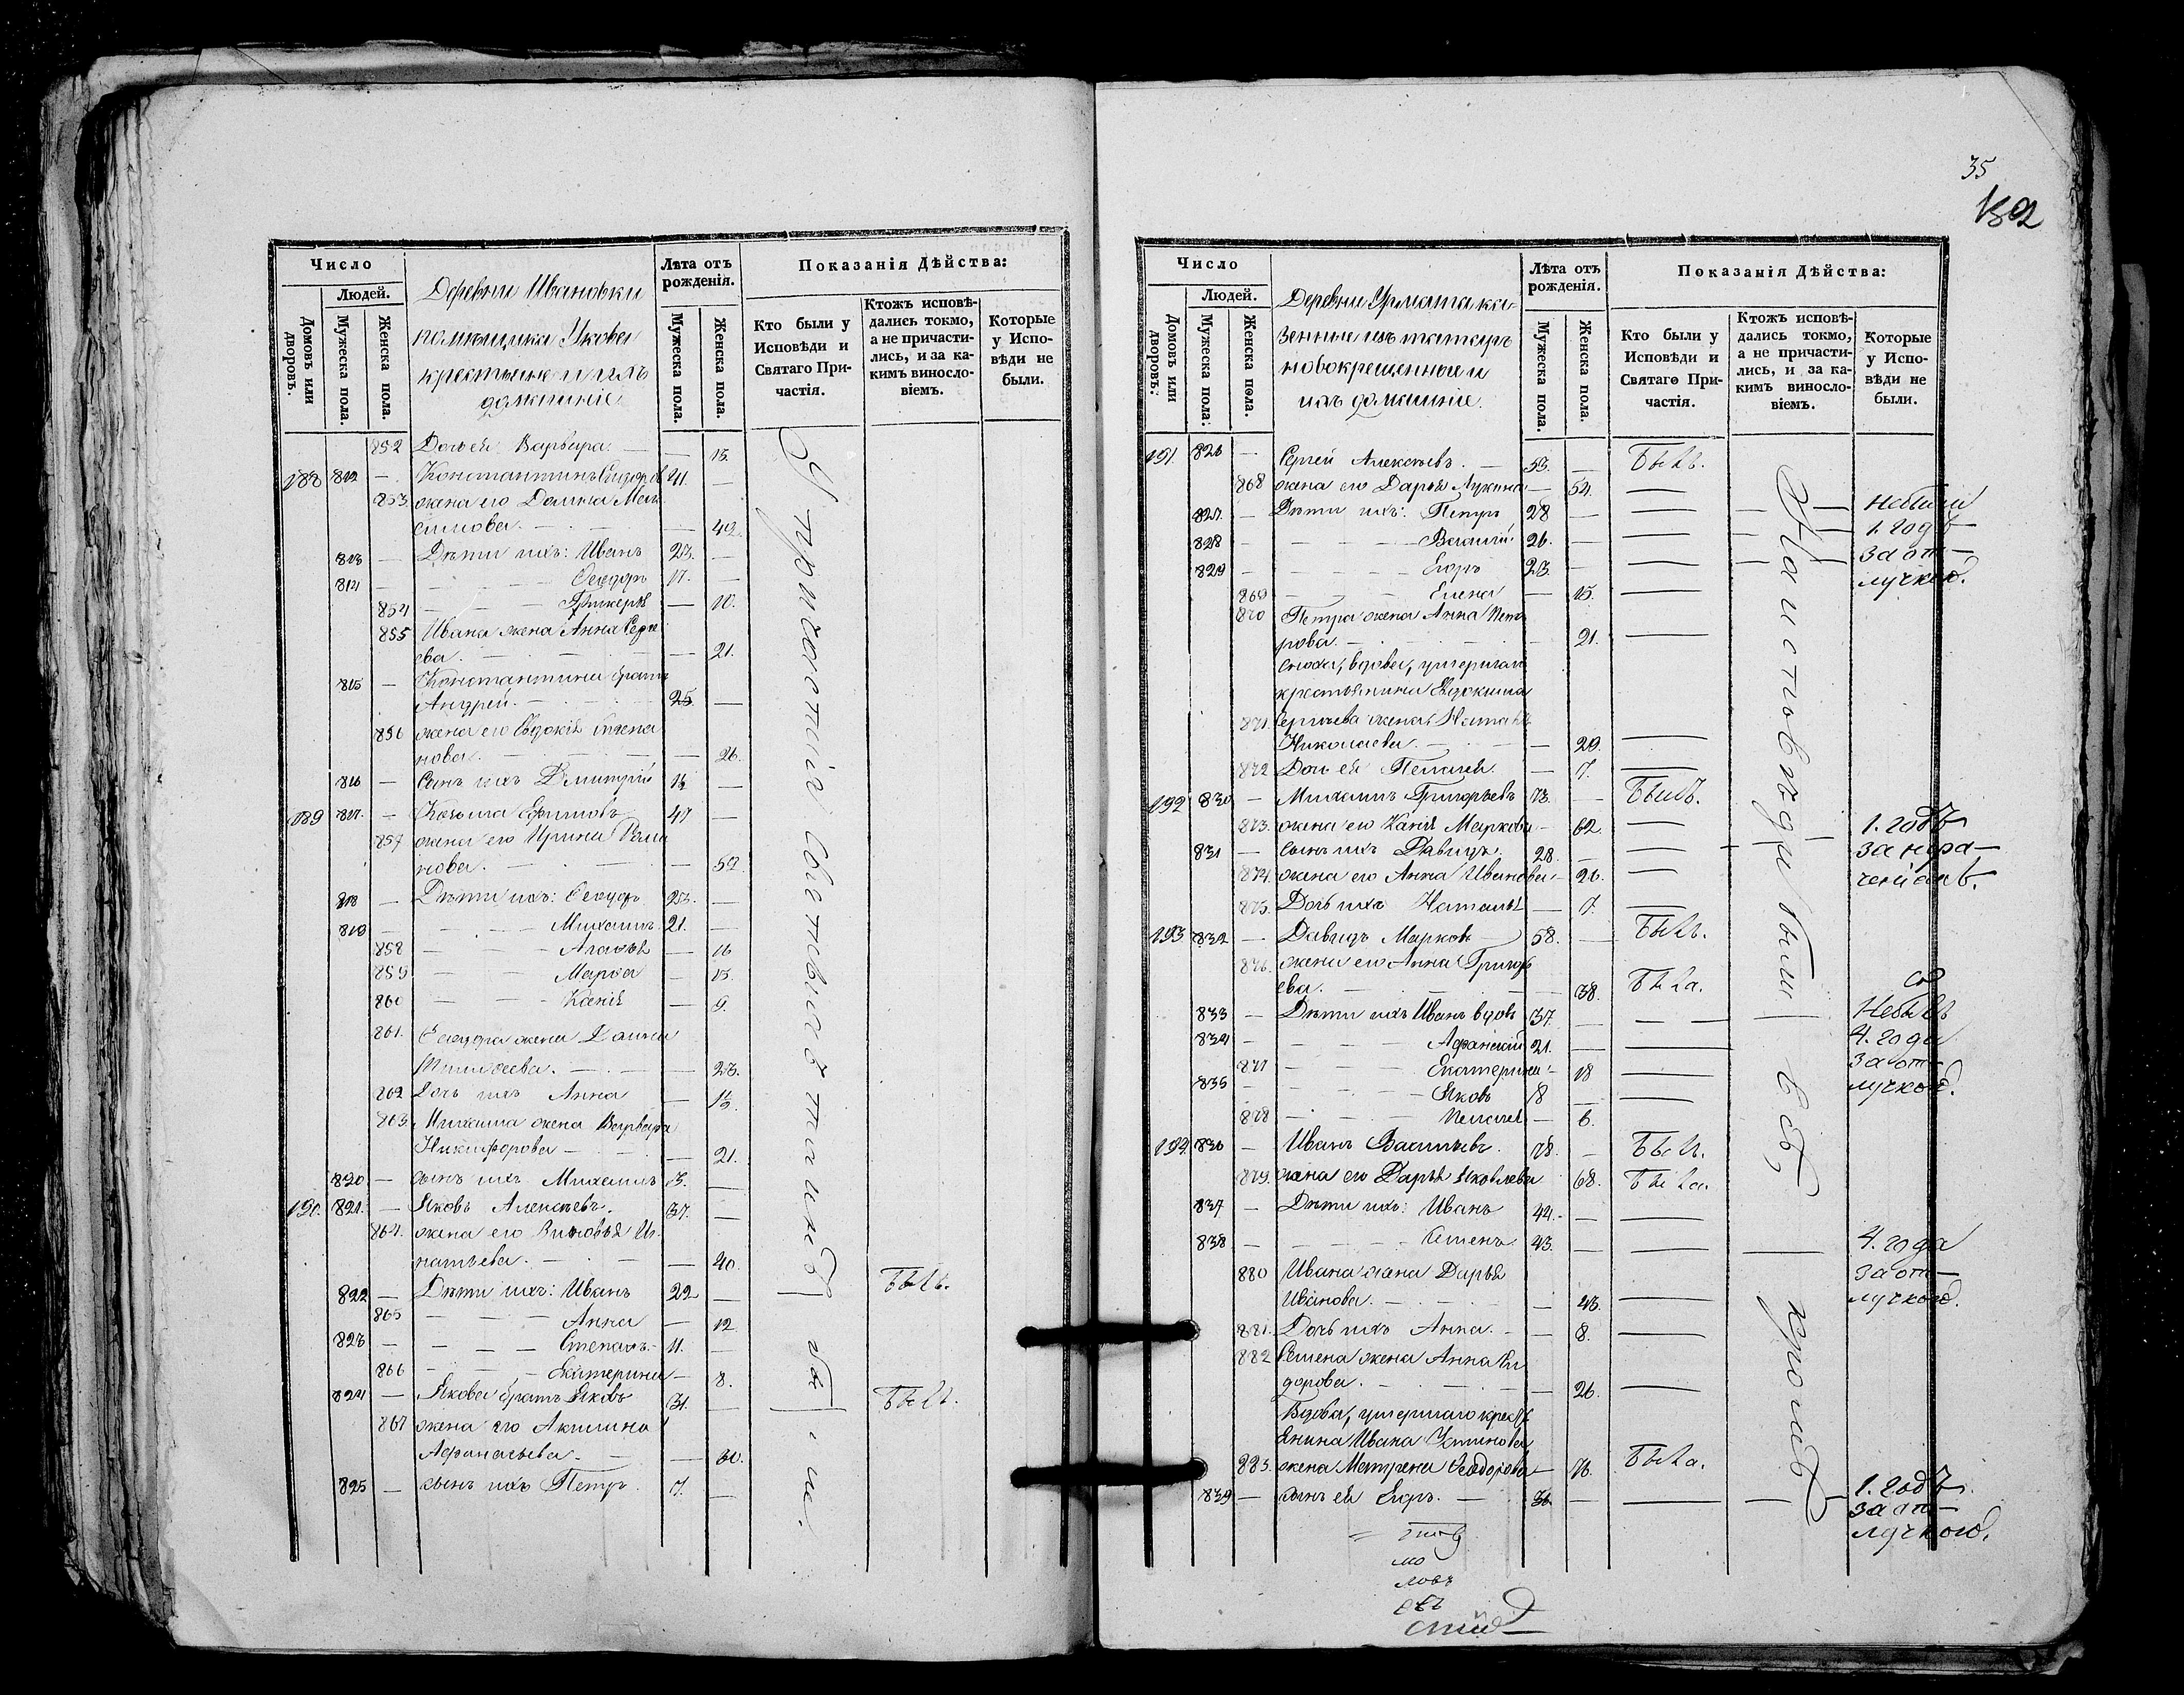 Число
Людей.
Домовъ или дворовъ.
Мужеска пола.
Женска пола.
Деревни Ивановки
помѣщика
крестьяне и ихъ
домашніе
Лѣта отъ рожденія.
Мужеска пола.
Женска пола.
Показанія Дѣйства:
Кто были у Исповѣди и Святаго Причастія.
Ктожъ исповѣдались токмо, а не причастились, и за какимъ винословіемъ.
Которые у Исповѣди не были.
852 Дочь ея Варвара. — 15.
188 812 — Константинъ 41. —
853. жена его
симова. — 42.
813 — Дѣти ихъ: Иванъ 23. —
814 — Ѳеодоръ 17. —
854 — Гликерія — 10.
855 Ивана жена Анна Серге
ева. — 21.
815 — Константина братъ
Андрей. — 25 —
856 жена его Евдокія Степа
нова. — 26.
816 — Сынъ ихъ Димитрій —
189 817. — Козьма Ефимовъ 47 —
857 жена его Ирина Рома
нова. — 52.
818 — Дѣти ихъ: Ѳеодоръ 23. —
819 — Михаилъ. 21. —
858 — Агафья — 16
859 — Марѳа — 13.
860 — Ксенія — 9.
861. Ѳеодора жена
Тимоѳеева. — 23.
862 Дочь ихъ Анна —
863. Михаила жена Варвара
Никифорова — 21.
820 — сынъ ихъ Михаилъ 3. —
190. 821. — Яковъ Алексѣевъ. 37. —
864. жена его Зиновья Иг
натьева. — 40.
822 — Дѣти ихъ: Иванъ 22 — Былъ.
865 — Анна — 12
823 — Степанъ. 11. —
866 — Екатерина — 8.
824 — Якова братъ Яковъ 31. — Былъ.
867 жена его Акилина
Афанасьева. — 30.
825 — сынъ ихъ Петръ. 7. —
У причастія Святыхъ Таинъ
35
152
Число
Людей.
Домовъ или дворовъ.
Мужеска пола.
Женска пола.
Деревни Урмата ка-
зенные изъ татаръ
новокрещенные и
ихъ домашніе.
Лѣта отъ рожденія.
Мужеска пола.
Женска пола.
Показанія Дѣйства:
Кто были у Исповѣди и Святаго Причастія.
Ктожъ исповѣдались токмо, а не причастились, и за какимъ винословіемъ.
Которые у Исповѣди не были.
191. 826 — Сергей Алексѣевъ. 53. — Былъ.
868 жена его Дарья Лукина — 54. —
827. — Дѣти ихъ: Петръ 28 — небыли
828 — Василій 26. — 1. годъ
829 — Егоръ 23. — за от-
869 — Елена — 15. — лучкою.
870 Петра жена Анна Пет
рова. — 21. —
сноха, вдова, умершаго
крестьянина Евдокима
871. Сергѣева жена Наталья
Николаева. — 29. —
872 Дочь ея Пелагея. — 7. —
192 830 — Михаилъ Григорьевъ 73. — Былъ.
873. жена его Ксенія Маркова — 62. — 1. годъ
831 — сынъ ихъ Давидъ. 28. — за нера-
874. жена его Анна Иванова — 26. — ченіемъ.
875. Дочь ихъ Наталья — 7. —
193 832 — Давидъ Марковъ 58. — Былъ.
876. жена его Анна Григорь
ева. — 38. Была.
833 — Дѣти ихъ Иванъ вдовъ 37. — Небылъ
834 — Афанасій 21. — 4. года
877 — Екатерина — 18 — за от-
835 — Яковъ 8 — лучкою.
878 — Пелагея — 6.
194. 836 — Иванъ Васильевъ. 78. — Былъ.
879. жена его Дарья Яковлева 68. Была.
837 — Дѣти ихъ: Иванъ 44. —
838 — Семенъ. 43. — 4. года
880 Ивана жена Дарья за от-
Иванова. — 43. — лучкою.
881. Дочь ихъ Анна. — 8. —
882 Семена жена Анна Си
дорова. — 26. —
Вдова, умершаго кресть
янина Ивана
883. жена Матрена Ѳеодорова — 76. Была.
839 — сынъ ея Егоръ. — 36. — 1. годъ
за от-
лучкою.
На исповѣди были всѣ, кромѣ